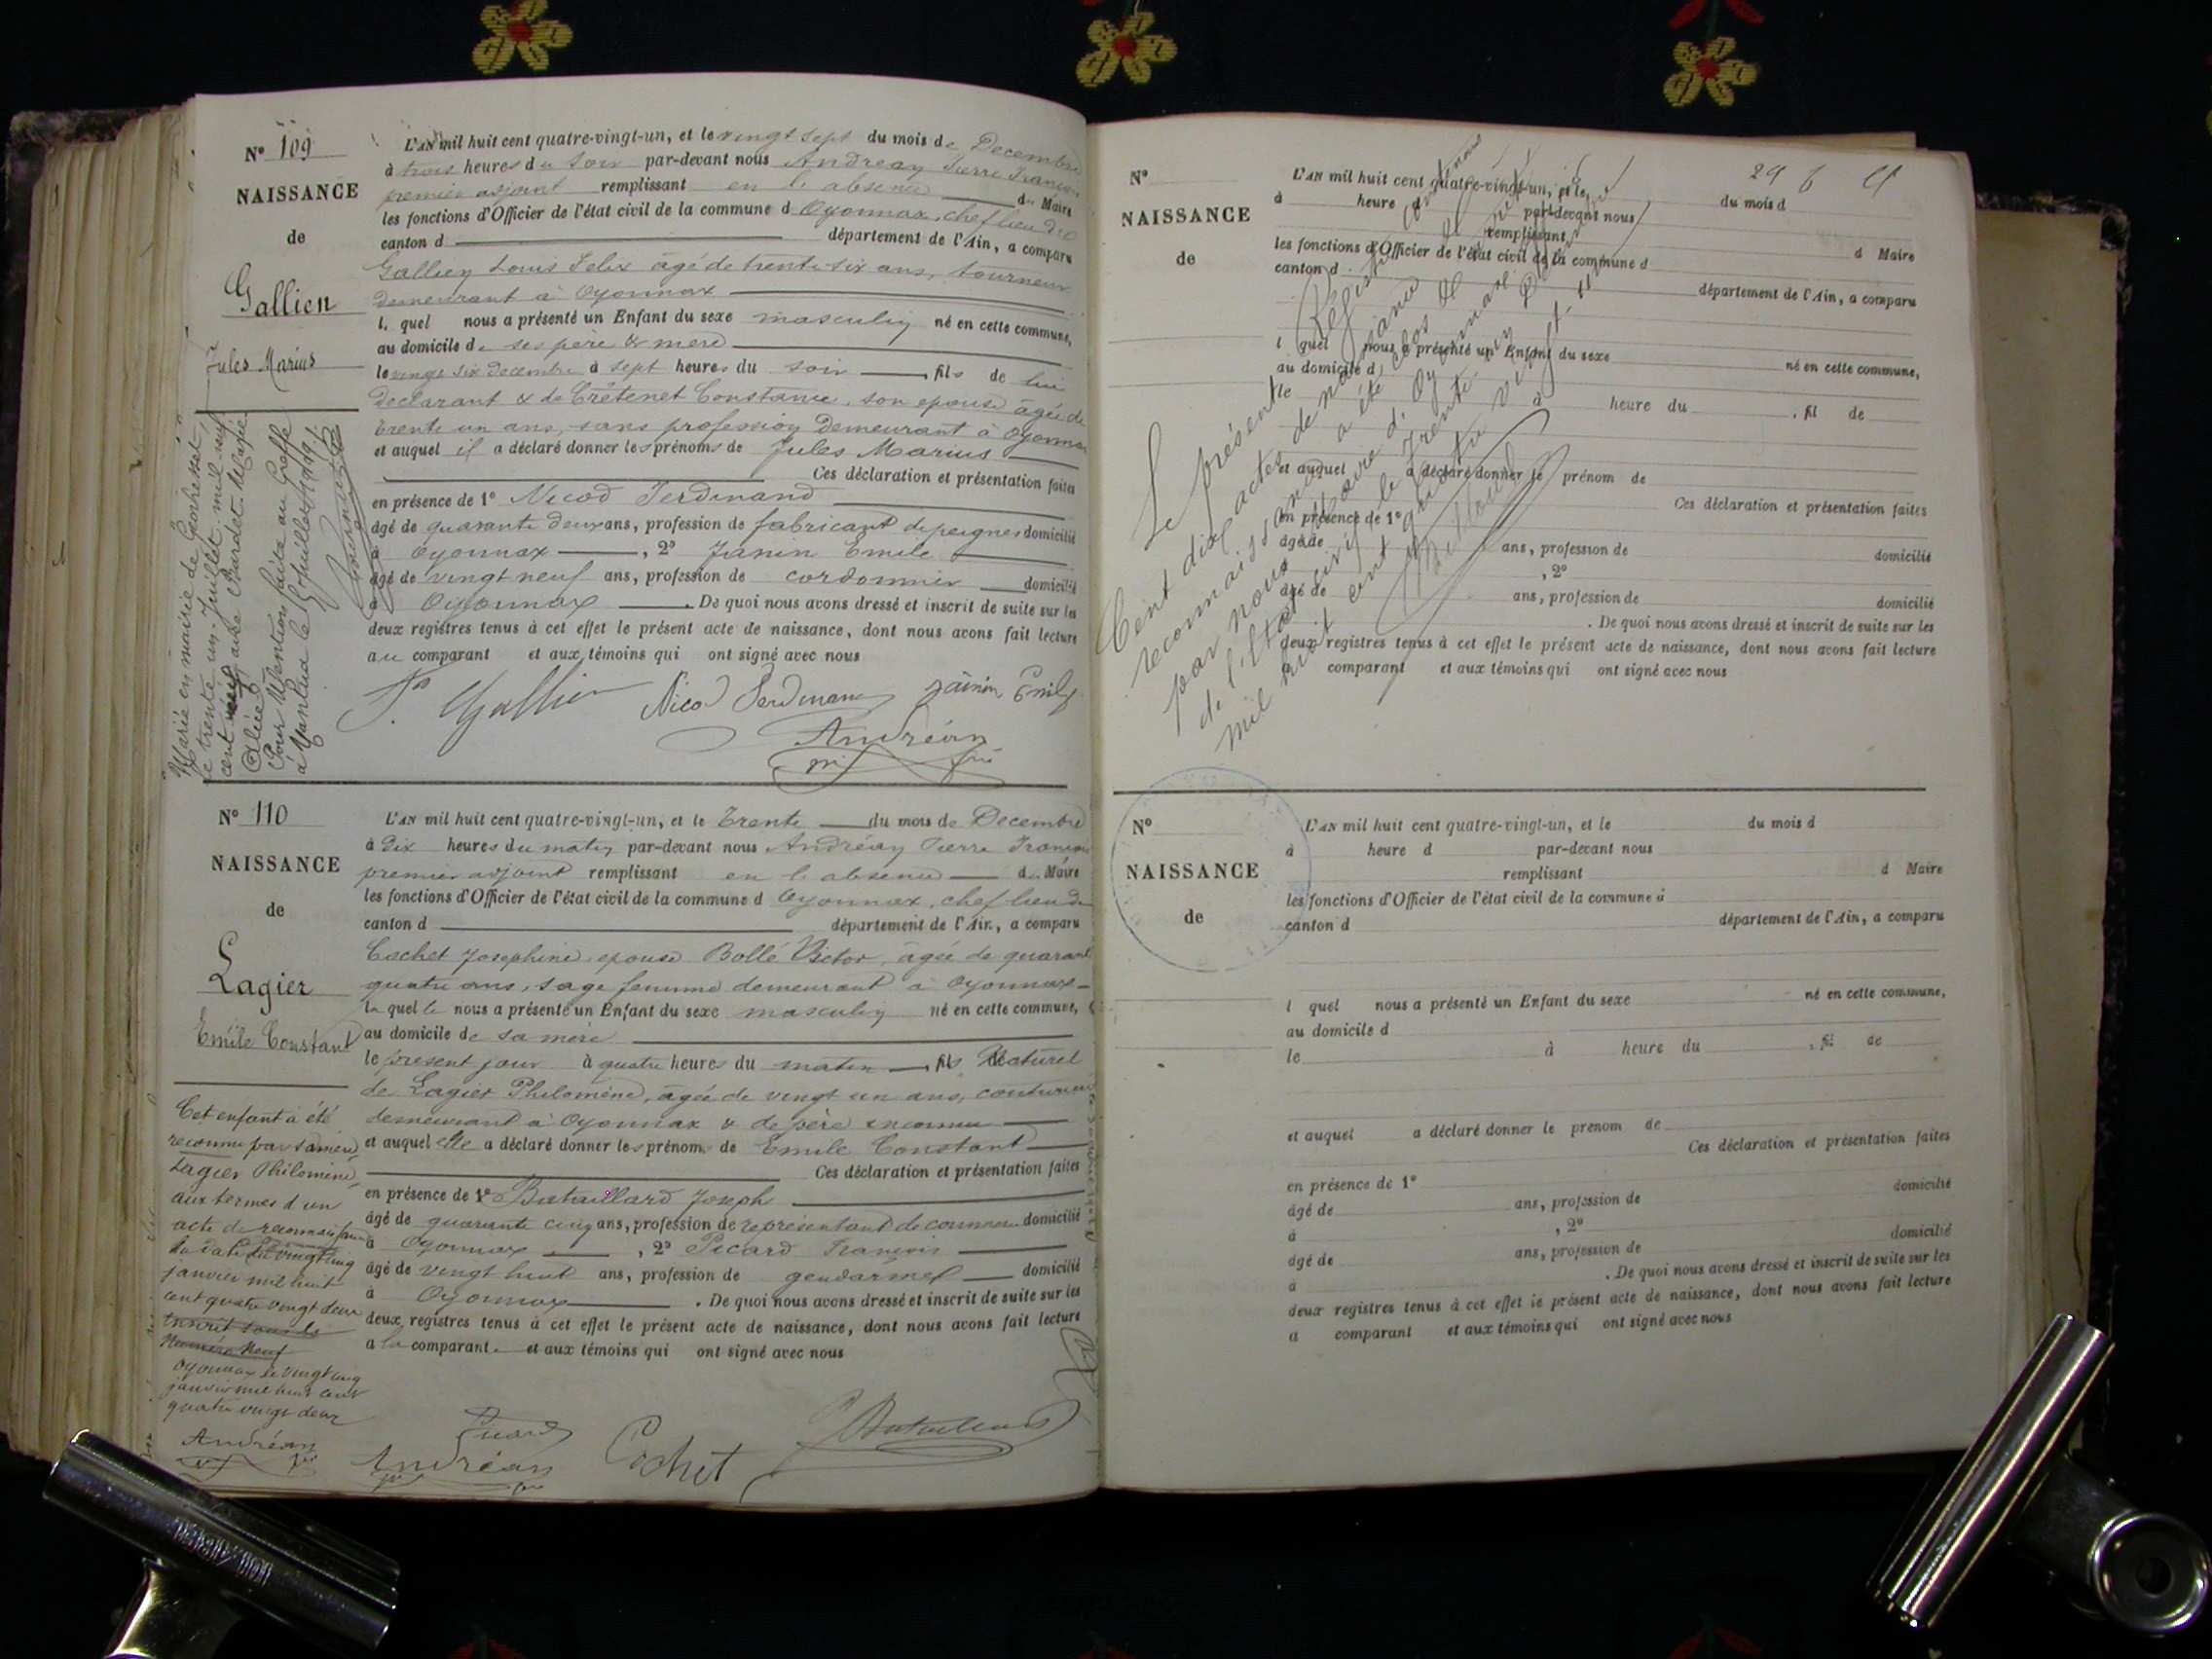 N° 109
NAISSANCE
de
Gallien
Jules Marius
L'AN mil huit cent quatre-vingt-un, et le vingt sept du mois de Decembre
à trois heures du soir par-devant nous Andréan Pierre François
premier adjoint remplissant en l'absence du Maire
les fonctions d'Officier de l'état civil de la commune d'Oyonnax, chef lieu de
canton d département de l'Ain, a comparu
Gallien Louis Felix âgé de trente six ans, tourneur
demeurant à Oyonnax
lequel nous a présenté un Enfant du sexe masculin né en cette commune,
au domicile de ses père & mère
le vingt six decembre à sept heures du soir, fils de lui
declarant & de Crétenet Constance, son epouse âgée de
trente un ans, sans profession demeurant à Oyonnax
et auquel il a déclaré donner les prénoms de Jules Marius
Ces déclaration et présentation faites
en présence de 1° Nicod Ferdinand
âgé de quarante deux ans, profession de fabricant de peignes domicilié
à Oyonnax, 2° Janin Emile
âgé de vingt neuf ans, profession de cordonnier domicilié
à Oyonnax. De quoi nous avons dressé et inscrit de suite sur les
deux registres tenus à cet effet le présent acte de naissance, dont nous avons fait lecture
au comparant et aux témoins qui ont signé avec nous
Gallien Nicod Ferdinand Janin Emile
Andréan
Marié en mairie de Géovresset
le trente un Juillet mil neuf
cent avec Chardet Marie
Alice
Pour Mention faite au Greffe
à Nantua le
N° 110
NAISSANCE
de
Lagier
Emile Constant
L'AN mil huit cent quatre-vingt-un, et le trente du mois de Decembre
à dix heures du matin par-devant nous Andréan Pierre François
premier adjoint remplissant en l'absence du Maire
les fonctions d'Officier de l'état civil de la commune d'Oyonnax, chef lieu de
canton d département de l'Ain, a comparu
Cochet Josephine, epouse Bollé Victor, âgée de quarante
quatre ans, sage femme demeurant à Oyonnax
laquelle nous a présenté un Enfant du sexe masculin né en cette commune,
au domicile de sa mère
le present jour à quatre heures du matin, fils Naturel
de Lagier Philomène, âgée de vingt un ans, couturière
demeurant à Oyonnax & de père inconnu
et auquel elle a déclaré donner les prénoms de Emile Constant
Ces déclaration et présentation faites
en présence de 1° Bataillard Joseph
âgé de quarante cinq ans, profession de représentant de commerce domicilié
à Oyonnax, 2° Picard François
âgé de vingt huit ans, profession de gendarme domicilié
à Oyonnax. De quoi nous avons dressé et inscrit de suite sur les
deux registres tenus à cet effet le présent acte de naissance, dont nous avons fait lecture
a la comparante et aux témoins qui ont signé avec nous
Picard
Andréan Cochet Bataillard
Cet enfant à été
reconnu par sa mère
Lagier Philomène,
aux termes d'un
acte de reconnaissance
en date du vingt cinq
janvier mil huit
cent quatre vingt deux
inscrit sous le
Numero Neuf
Oyonnax le vingt cinq
janvier mil huit cent
quatre vingt deux
Andréan
29 6
N°
NAISSANCE
de
L'AN mil huit cent quatre-vingt-un, et le du mois d
à heure d par-devant nous
remplissant d Maire
les fonctions d'Officier de l'état civil de la commune d
canton d département de l'Ain, a comparu
l quel nous a présenté un Enfant du sexe né en cette commune,
au domicile d
le à heure du, fil de
et auquel a déclaré donner le prénom de
Ces déclaration et présentation faites
en présence de 1°
âgé de ans, profession de domicilié
, 2°
âgé de ans, profession de domicilié
. De quoi nous avons dressé et inscrit de suite sur les
deux registres tenus à cet effet le présent acte de naissance, dont nous avons fait lecture
a comparant et aux témoins qui ont signé avec nous
Le présent Registre contenant
Cent dix actes de naissance et
reconnaissance a été clos
par nous Maire d'Oyonnax
de l'état civil le trente
mil huit cent quatre vingt
N°
NAISSANCE
de
L'AN mil huit cent quatre-vingt-un, et le du mois d
à heure d par-devant nous
remplissant d Maire
les fonctions d'Officier de l'état civil de la commune d
canton d département de l'Ain, a comparu
l quel nous a présenté un Enfant du sexe né en cette commune,
au domicile d
le à heure du, fil de
et auquel a déclaré donner le prénom de
Ces déclaration et présentation faites
en présence de 1°
âgé de ans, profession de domicilié
à , 2°
âgé de ans, profession de domicilié
à . De quoi nous avons dressé et inscrit de suite sur les
deux registres tenus à cet effet le présent acte de naissance, dont nous avons fait lecture
a comparant et aux témoins qui ont signé avec nous